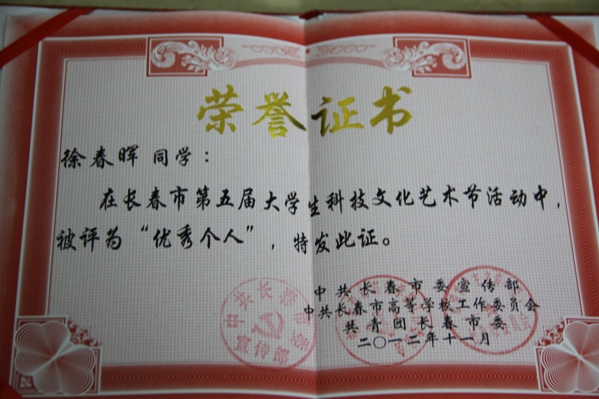 荣誉证书
徐春晖 同学：
在长春市第五届大学生科技文化艺术节活动中，
被评为“优秀个人”，特发此证。
中共长春市委宣传部
中共长春市高等学校工作委员会
共青团长春市委
二〇一二年十一月
中共长春市委
宣传部